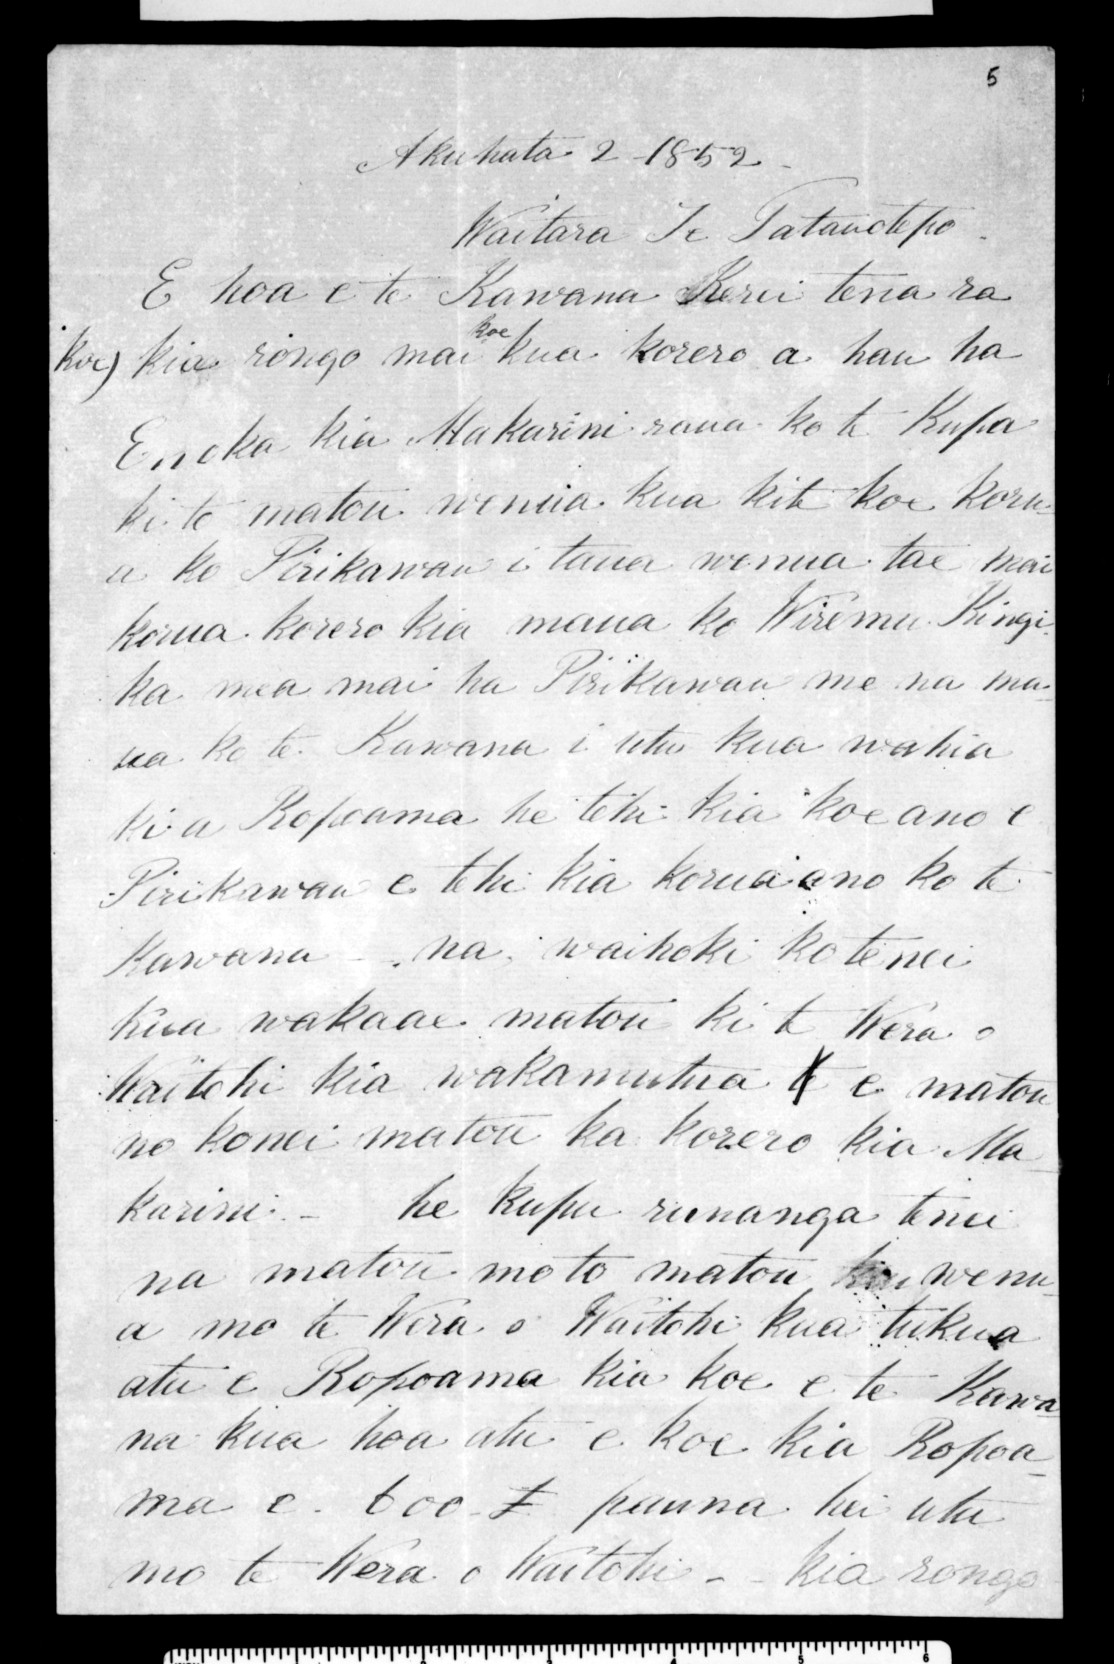 5
Akuhata 2 - 1852 -
Waitara Te Tatauotepo -
E hoa e te Kawana Kerei tena ra
koe) kia rongo mai koe kua korero a hau ha
Enoka kia Makarini raua ko te Kupa
ki to matou wenua kua kite koe koru-
a ko Pirikawau i taua wenua tae mai
korua korero kia maua ko Wiremu Kingi
ka mea mai ha Pirikawau me na ma-
ua ko te Kawana i utu kua wahia
ki a Ropoama he tehi kia koe ano e
Pirikawau e tehi kia korua ano ko te
Kawana - . na, waihoki ko tenei
kua wakaae matou ki te Wera o
Waitohi kia wakamutua e matou
no konei matou ka korero kia Ma-
karini - he kupu runanga tenei
na matou mo to matou wenu-
a mo te Wera o Waitohi kua tukua
atu e Ropoama kia koe e te Kawa-
na kua hoa atu e koe kia Ropoa-
ma e. 600 £ pauna hei utu
mo te Wera o Waitohi - - kia rongo